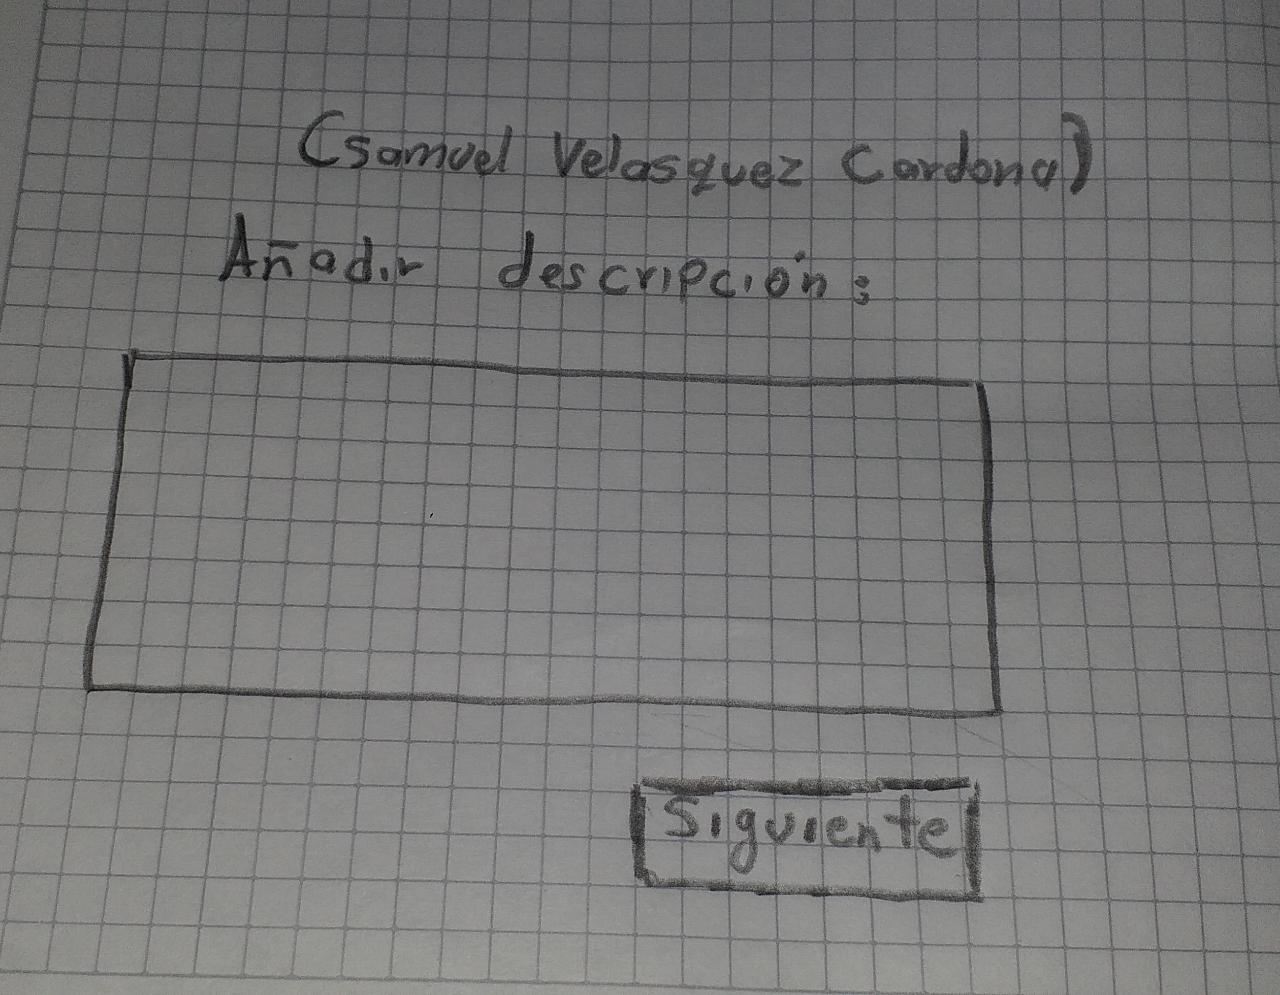 (Samuel Velasquez Cardona)
Añadir descripción:
Siguiente